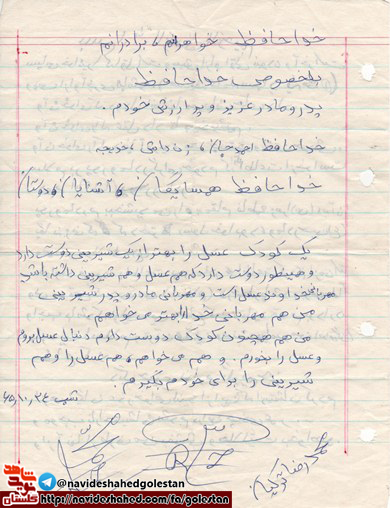 خداحافظ خواهرانم، برادرانم
بخصوص خداحافظ
پدر و مادر عزیز و پر ارزش خودم.
خداحافظ زن دائی، خدیجه
خداحافظ همسایگان، آشنایان، دوستان
یک کودک عسل را بهتر از یک شیرینی دوست دارد
و همینطور دوست دارد که هم عسل و هم شیرینی داشته باشد
مهربانی خداوند عسل است و مهربانی مادر و پدر شیرینی
من هم مهربانی خدا را بهتر می‌خواهم
من هم همچون کودک دوست دارم دنبال عسل بروم
و عسل را بخورم. و هم می‌خواهم، هم عسل را و هم
شیرینی را برای خودم بگیرم.
شب ۶۵،۱۰،۲۴
محمدرضا
@navideshahedgolestan
http://navideshahed.com/fa/golestan
نوید شاهد
گلستان